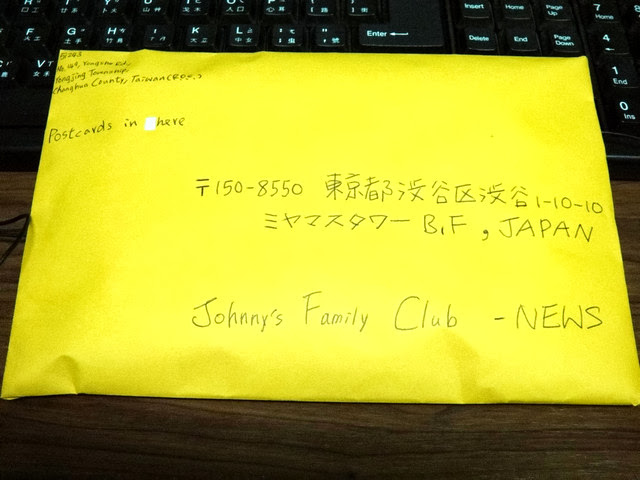 No. 449, Yongxing Rd.,
Yongjing Township,
Changhua County, Taiwan
Postcards in here
〒150-8550 東京都渋谷区渋谷1-10-10
ミヤマスタワー B1F , JAPAN
Johnny's Family Club - NEWS
Home
Page Up
Delete
End
Page Down
Enter
7 Home
4
1 End
0 Ins
G
H
J
K
L
V
B
N
M